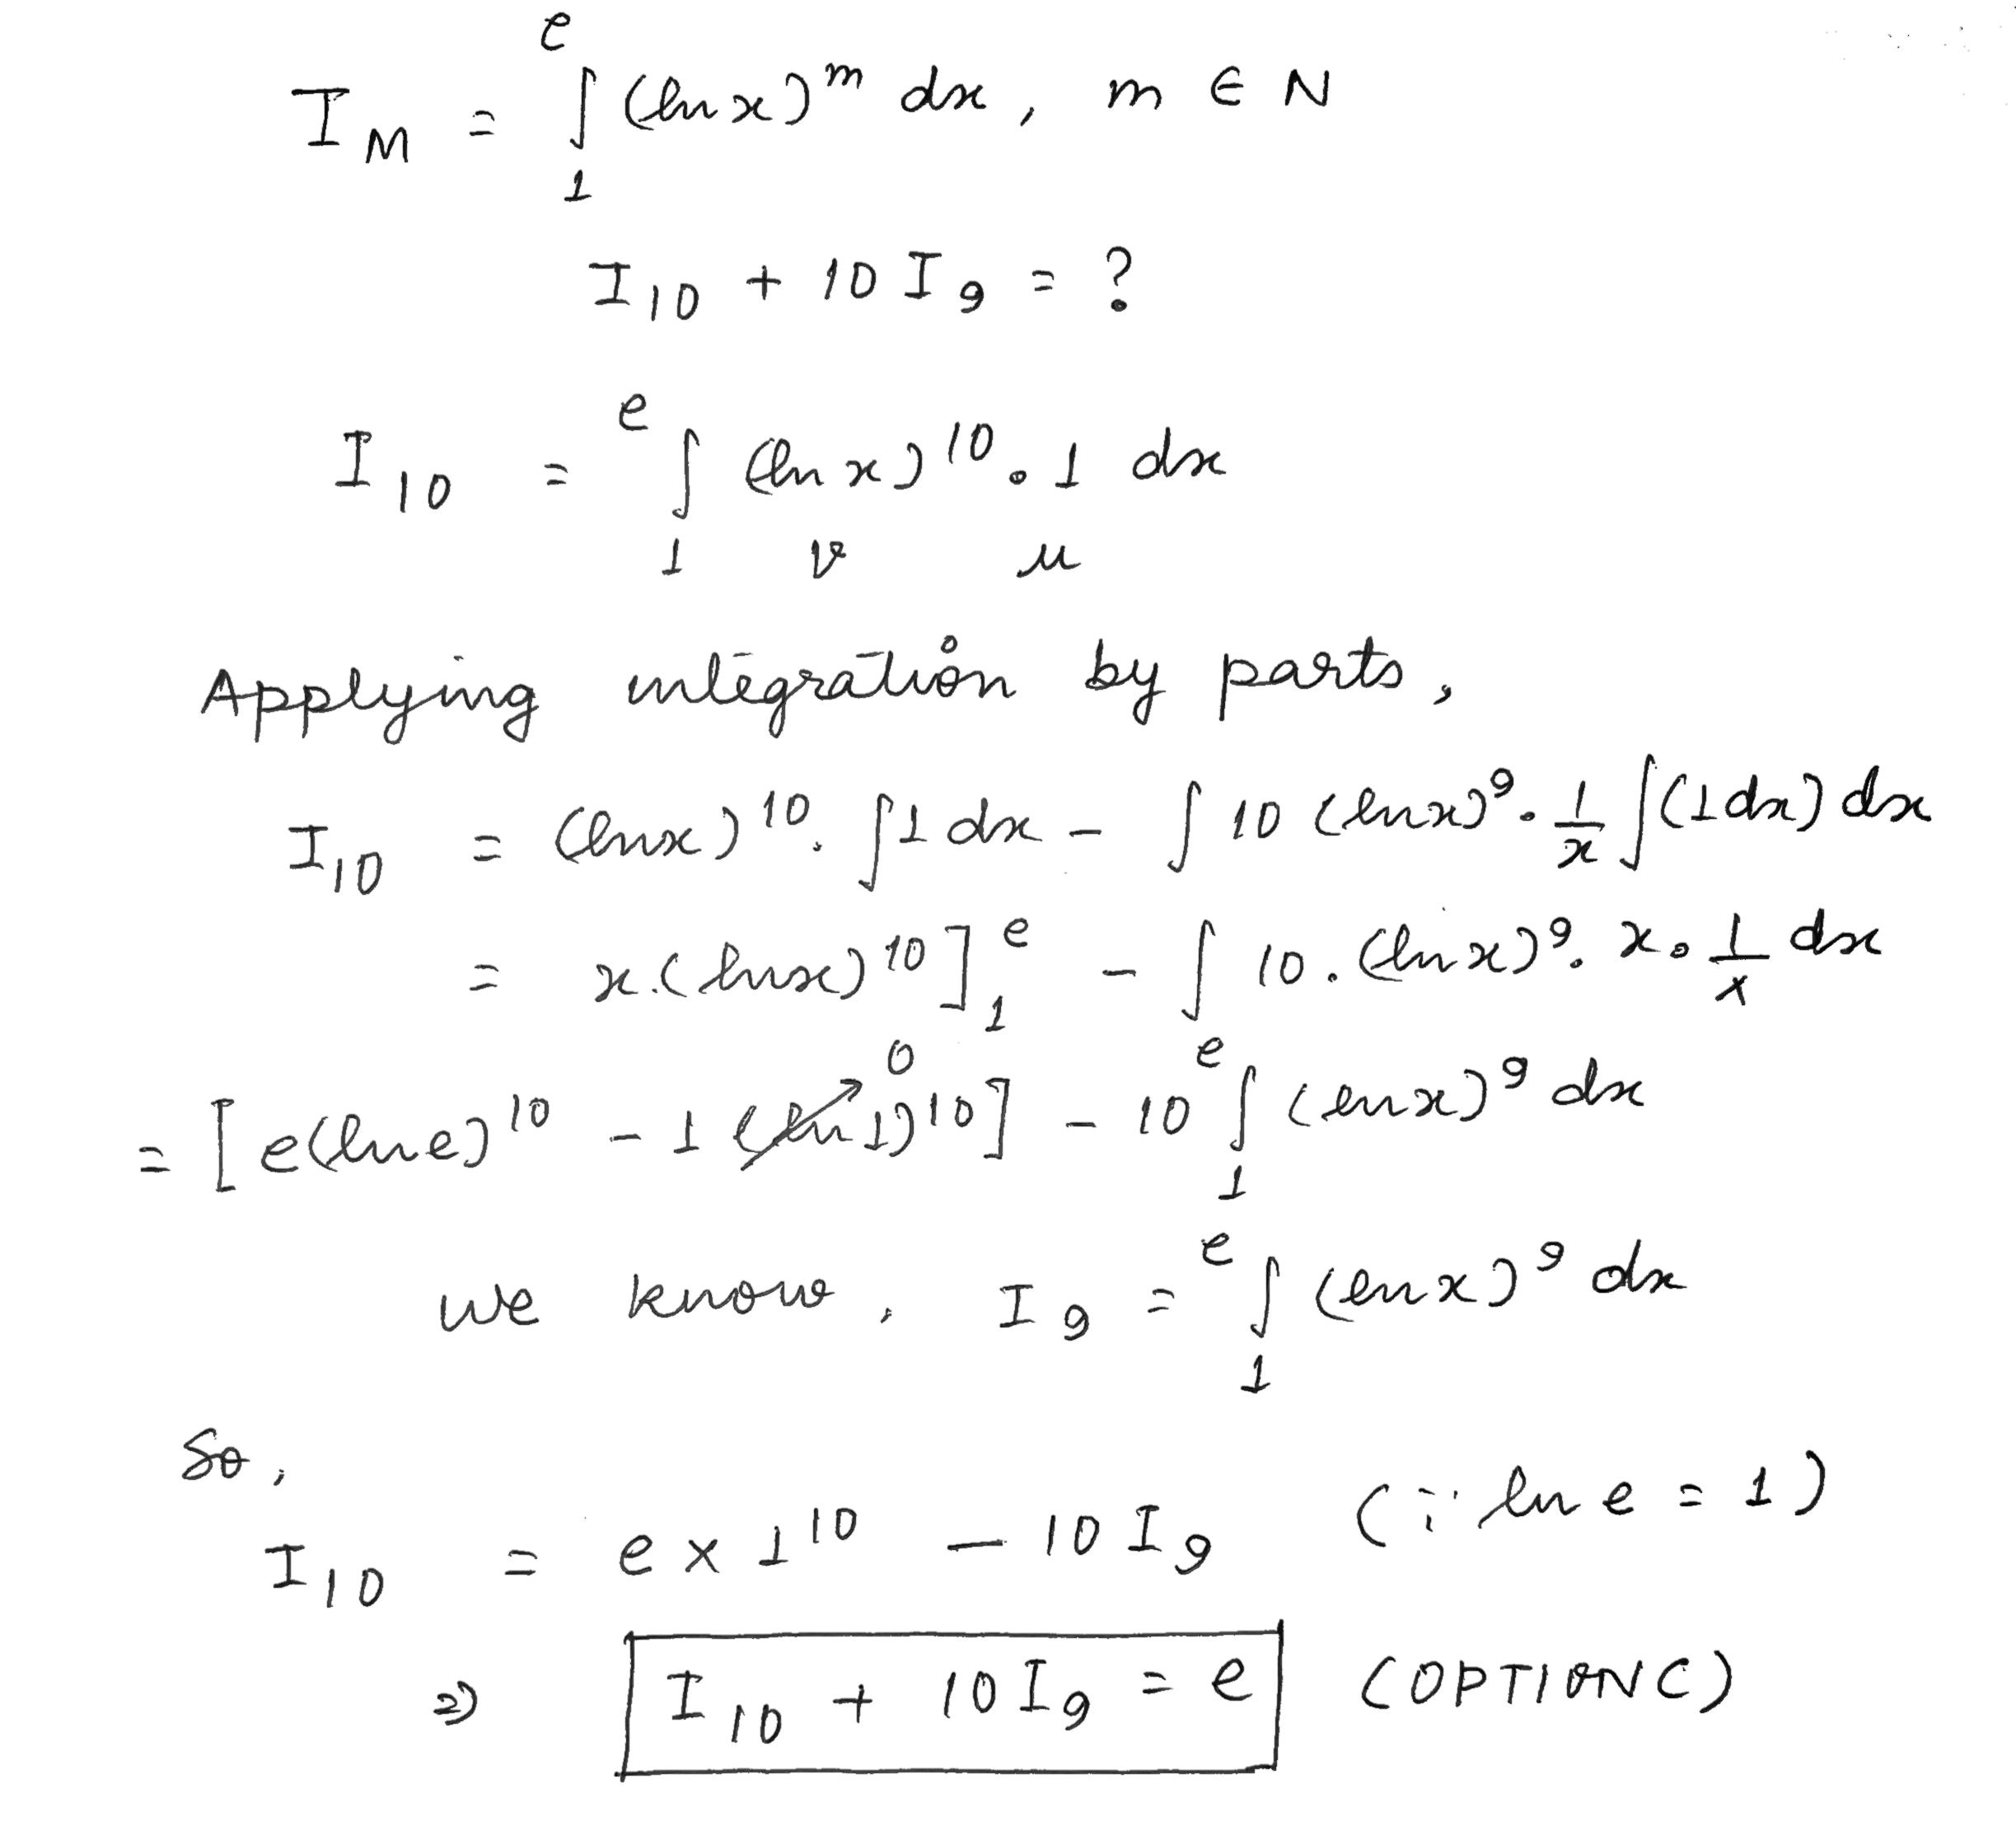 I_M = ∫_1^e (ln x)^m dx, m ∈ N
I_10 + 10 I_9 = ?
I_10 = ∫_1^e (ln x)^10 . 1 dx
v u
Applying integration by parts,
I_10 = (ln x)^10 . ∫1 dx - ∫ 10 (ln x)^9 . 1/x ∫(1 dx) dx
= x.(ln x)^10 ]_1^e - ∫ 10.(ln x)^9. x. 1/x dx
= [e(ln e)^10 - 1 (ln 1)^10] - 10 ∫_1^e (ln x)^9 dx
0
we know, I_9 = ∫_1^e (ln x)^9 dx
So,
I_10 = e x 1^10 - 10 I_9 (∵ ln e = 1)
⇒ I_10 + 10 I_9 = e (OPTION C)